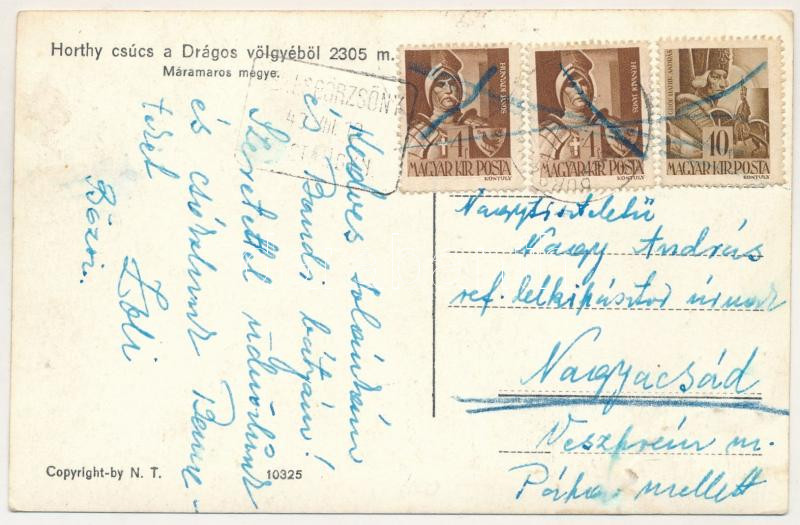 Horthy csúcs a Drágos völgyéböl 2305 m.
Máramaros megye.
HUNYADI JÁNOS
1f
MAGYAR KIR. POSTA
KONTULY
HUNYADI JÁNOS
1f
MAGYAR KIR. POSTA
KONTULY
10f
MAGYAR KIR. POSTA
KONTULY
Kedves
és Bandi bátyám!
Szeretettel üdvözlünk
és csókolunk
Zoli
Bözsi.
Nagytiszteletű
Nagy András
ref. lelkipásztor úrnak
Nagyacsád
Veszprém m.
Pápa mellett
Copyright-by N. T.
10325